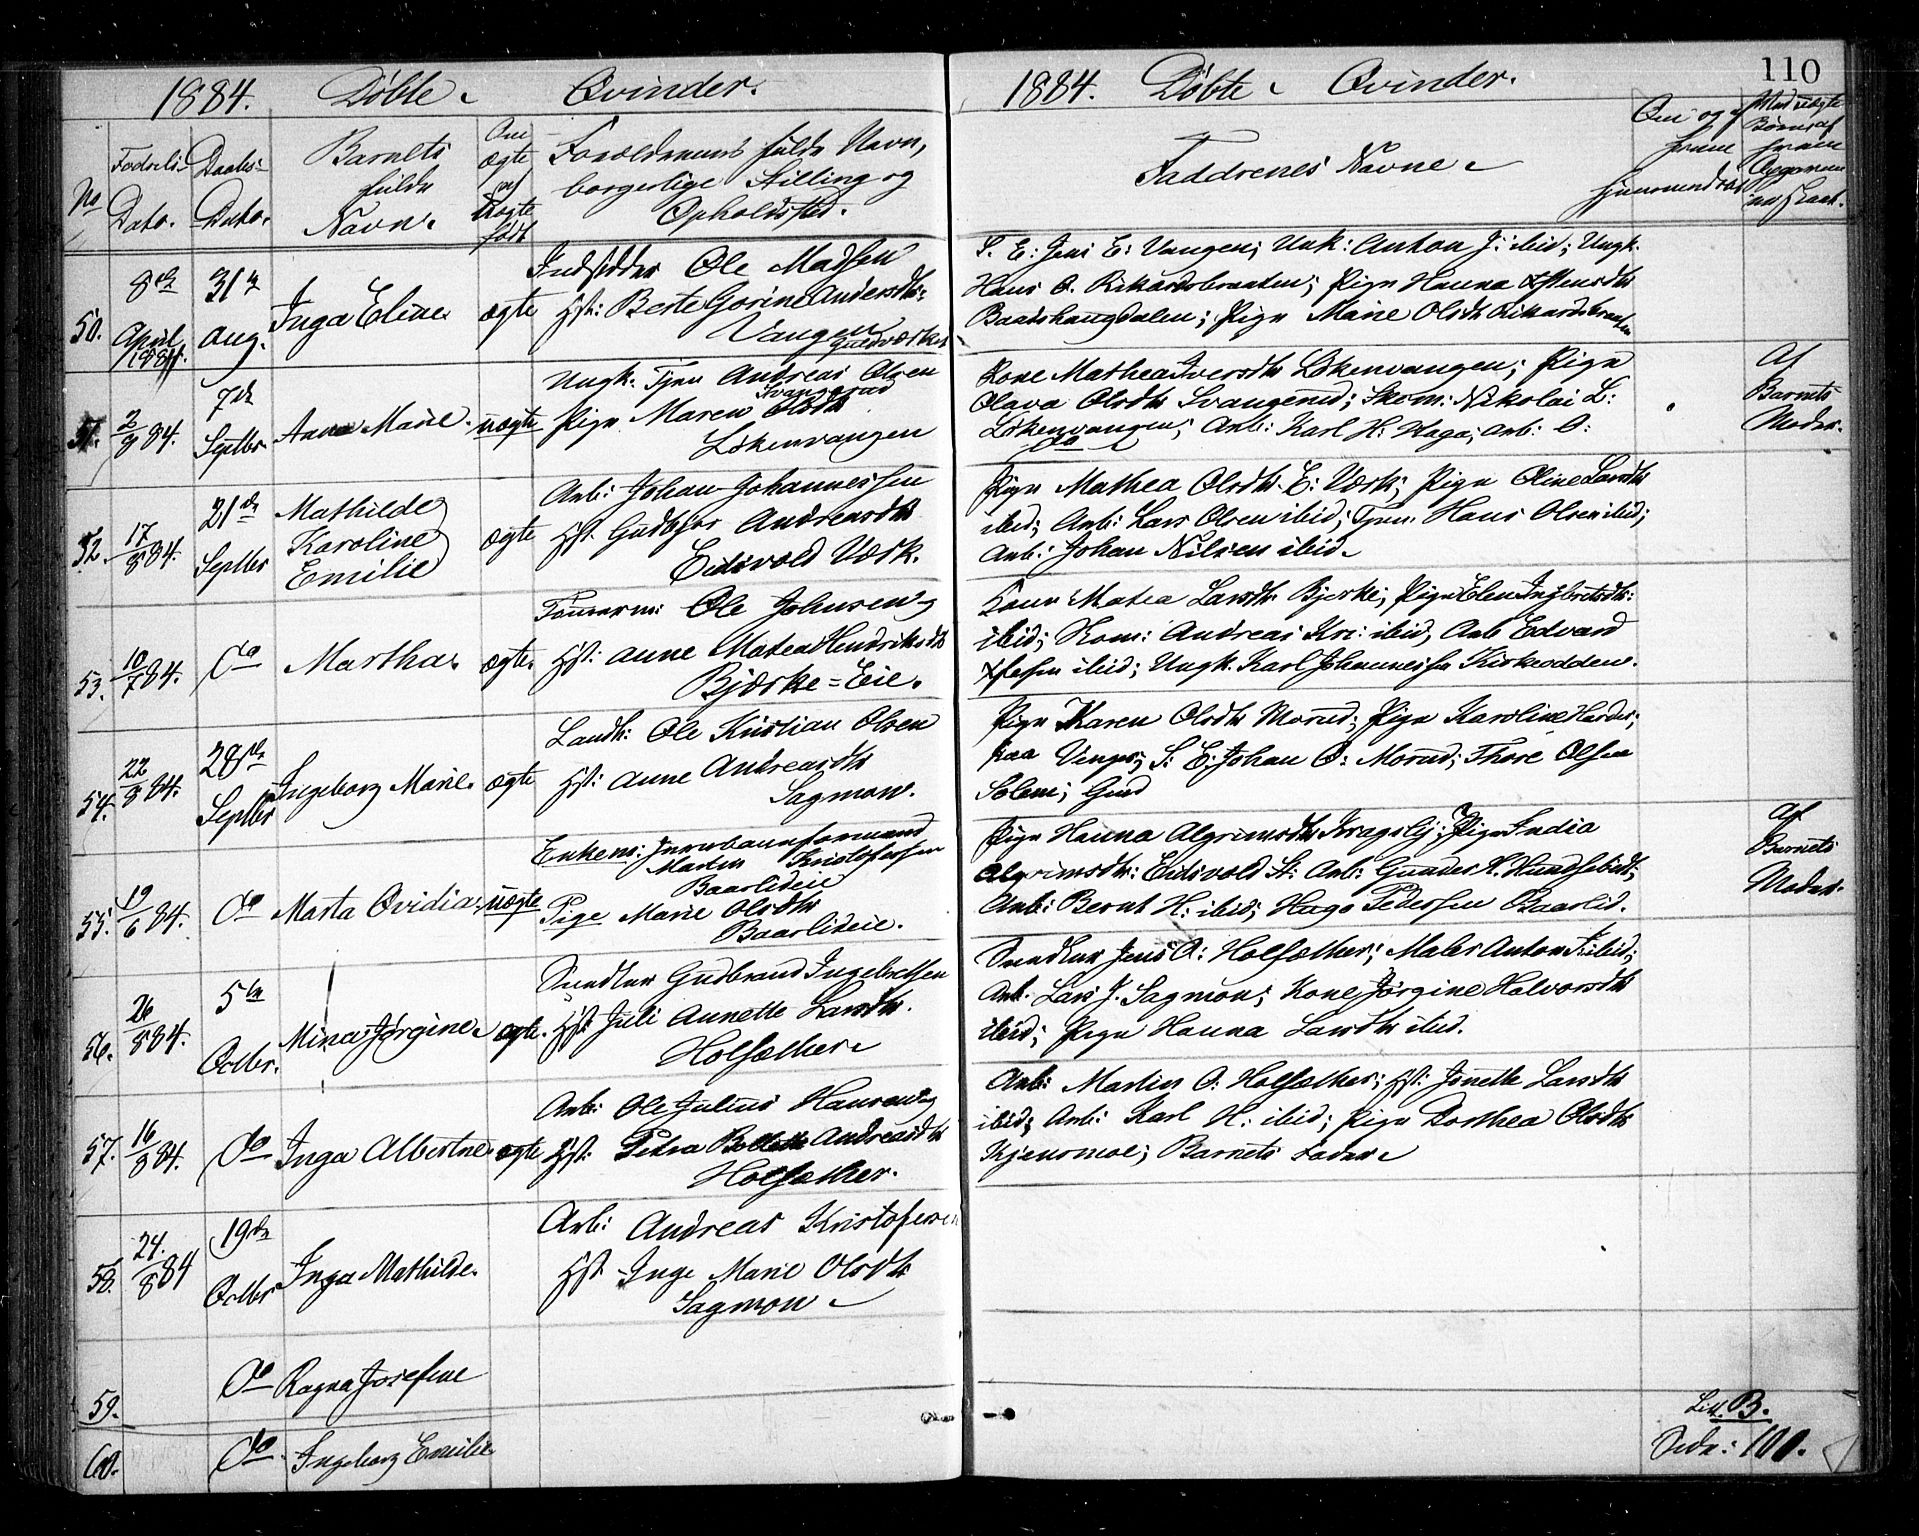 1884. Döbte Qvinder.
No
Födsels-
Dato.
Daabs-
Dato.
Barnets
fulde
Navn.
Om
ægte
el
uægte
født
Forældrenes fulde Navn,
borgerlige Stilling og
Opholdssted.
50.
8de
April
1884.
31te
Aug.
Inga Eline
ægte
Indsidder Ole Madsen
Hst: Berte Gorine Andersdtr:
Vangen
Guldværket
51.
2/8 84.
7de
Septbr
Anna Marie.
uægte
Ungk. Tjen Andreas Olsen
Svangerud
Pige Maren Olsdtr
Lökenvangen
52.
17/8 84.
21de
Septbr
Mathilde
Karoline
Emilie
ægte
Arb: Johan Johannessen
Hst. Andreasdtr
Eidsvold Værk.
53.
10/7 84.
Do
Martha.
ægte.
Tömrerm: Ole Johnsen
Hst: Anne Matea Hendriksdtr
Bjerke=Eie.
54.
22/8 84.
28de
Septbr
Ingeborg Marie.
ægte
Landh: Ole Kristian Olsen
Hst: Anne Andreasdtr
Sagmoen.
55.
19/6 84.
Do
Marta Ovidia.
uægte
Enkem: Jernbaneformand
Martin Kristofersen
Baarlideie
Pige Marie Olsdtr
Baarlideie.
56.
26/8 84.
5te
Octbr.
Mina Jörgine
ægte.
Gudbrand Ingebretsen
Hst Juli Annette Larsdtr.
Holsæther
57.
16/8 84.
Do
Inga Albertine
ægte
Arb: Ole Julius Hansen
Hst: Petra Andreasdtr
Holsæther.
58.
24./8 84
19de
Octbr
Inga Mathilde.
Arb: Andreas Kristofersen
Hst. Inge Marie Olsdtr
Sagmoen
59.
Do
Ragna Josefine
60.
Do
Ingeborg Emilie
110
1884. Döbte Qvinder.
Faddrenes Navne
Om og
fra
Med uægte
Börn: af
hvem
S. E: Jens E: Vangen; Unk: Anton J: ibid; Ungk.
Hans O. Rikardsbraaten; Pige Hanna
Baadshaugdalen; Pige Marie Olsdtr Rikardsbraaten
Kone Mathea Iversdtr Lökenvangen; Pige
Olava Olsdtr Svangerud; Skom: Nikolai L:
Lökenvangen; Arb: Karl H: Haga; Arb: O:
do
Af
Barnets
Moder.
Pige Mathea Olsdtr. E: Værk; Pige Oline Larsdtr
ibid; Arb: Lars Olsen ibid; Tjen: Hans Olsen ibid;
Arb: Johan Nilsen ibid.
Kone Matea Larsdtr Bjerke; Pige Elen Ingbretsdtr:
ibid; Andreas Kr: ibid, Arb Edvard
ibid; Ungk. Karl Johannessen Kirkeodden.
Pige Karen Olsdtr Morud; Pige Karoline
Venger; S: E: Johan O: Morud; Thore Olsen
Pige Hanna Algrimsdtr Pige India
Algrimsdtr: Eidsvold St: Arb: Gunder H.
Arb: Bernt H: ibid; Hugo Pedersen Baarlid.
Af
Barnets
Moder.
Jens A: Holsæther; Maler Anton ibid;
Arb. Lars J. Sagmoen; Kone Jörgine Halvorsdtr
ibid; Pige Hanna Larsdtr ibid.
Arb: Martin O: Holsæther; Hst: Jonette Larsdtr
ibid; Arb: Karl H: ibid; Pige Dorthea Olsdtr
Kjensmoe; Barnets Fader.
Litt. B.
Side: 100.